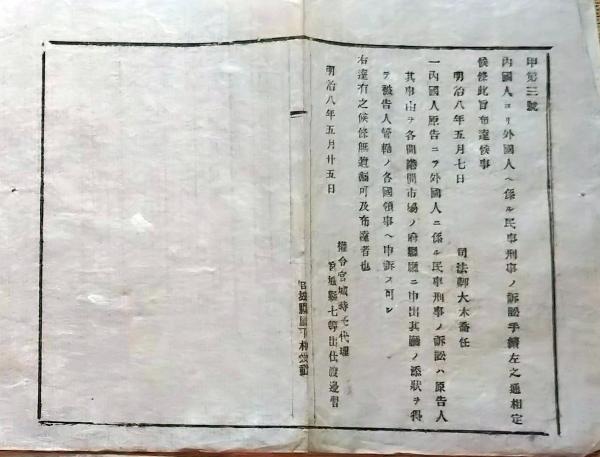 甲第三號
內國人ヨリ外國人ヘ係ル民事刑事ノ訴訟手續左之通相定
候條此旨布達候事
明治八年五月七日
司法卿大木喬任
一內國人原告ニテ外國人ニ係ル民事刑事ノ訴訟ハ原告人
其事由ヲ各開港開市場ノ府縣廳ニ申出其廳ノ添狀ヲ得
テ被告人管轄ノ各國領事ヘ申訴ス可シ
右達有之候條無遺漏可及布達者也
明治八年五月廿五日
權令宮城時亮代理
宮城縣七等出仕渡邊習